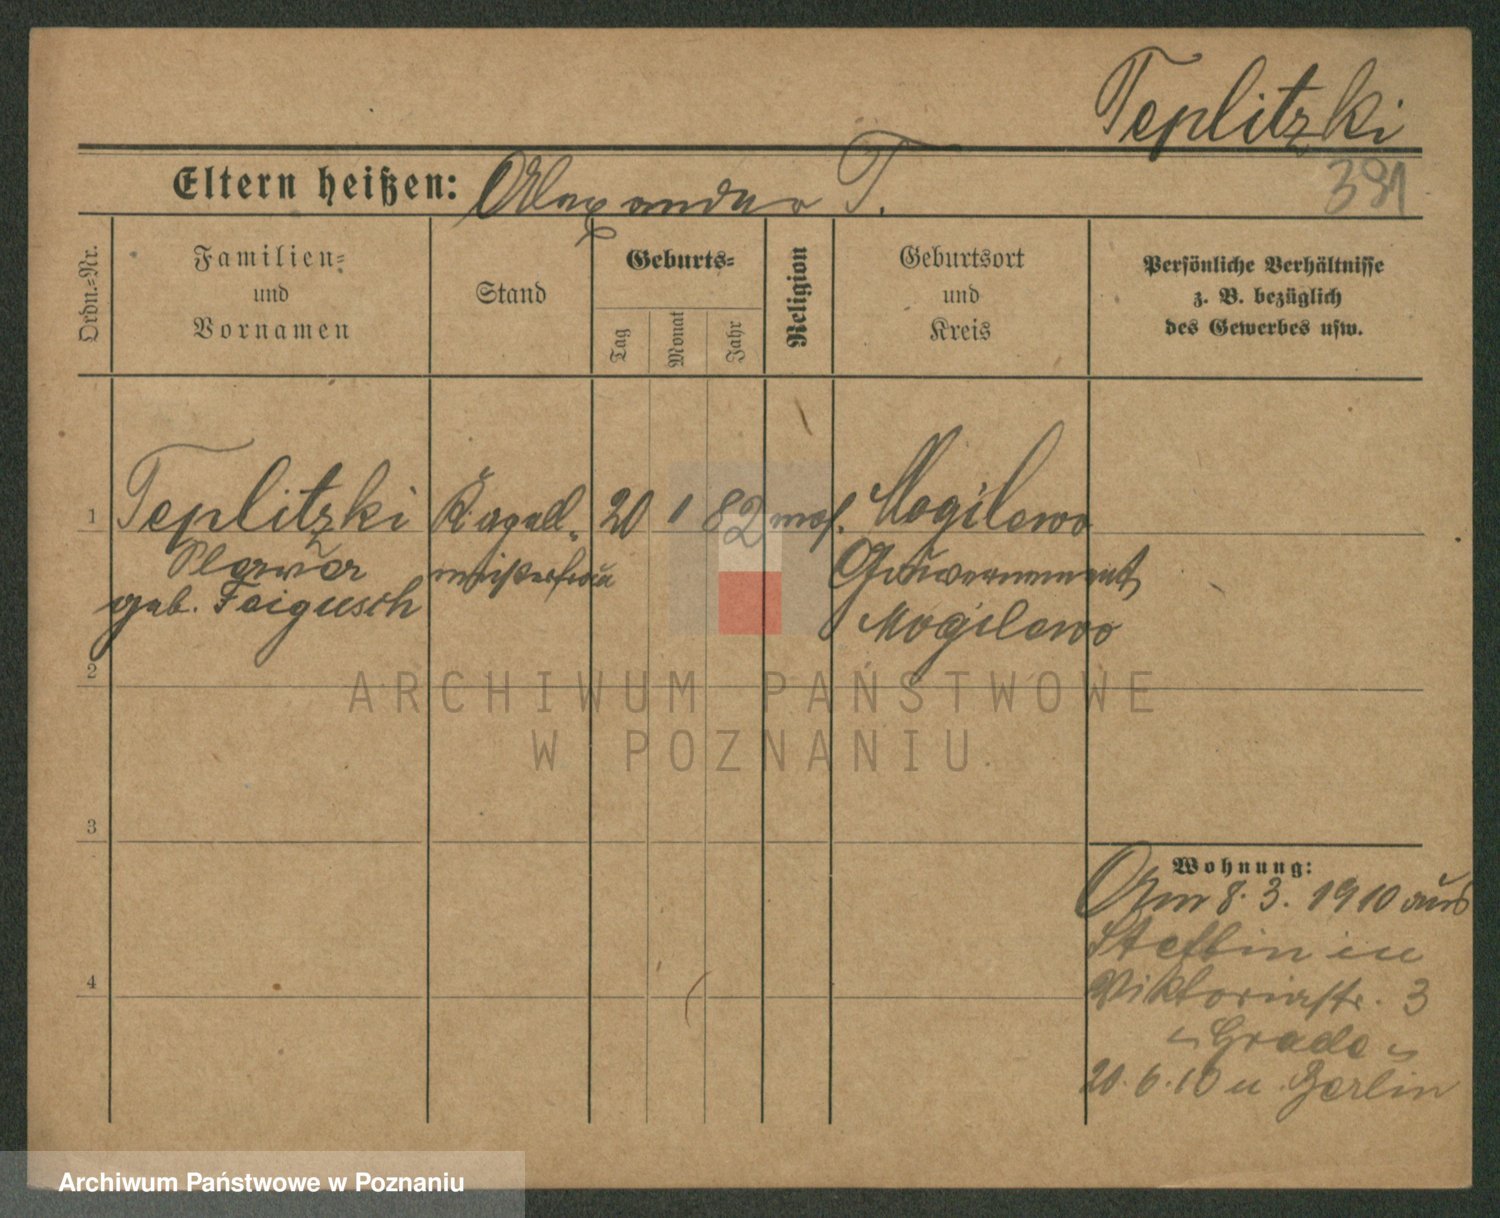 Teplitzki
381
Eltern heißen: Alexander T.
Ordn.=Nr.
Familien=
und
Vornamen
Stand
Geburts=
Tag
Monat
Jahr
Religion
Geburtsort
und
Kreis
Persönliche Verhältnisse
z. B. bezüglich
des Gewerbes usw.
1 Teplitzki Kapell- 20 1 82 mos. Mogilewo
meisterfrau Gouvernement
geb. Feigusch Mogilewo
2
3
4
Wohnung:
Am 8. 3. 1910 aus
Stettin in
Viktoriastr. 3
20.6.10 n. Berlin
ARCHIWUM PAŃSTWOWE
W POZNANIU
Archiwum Państwowe w Poznaniu